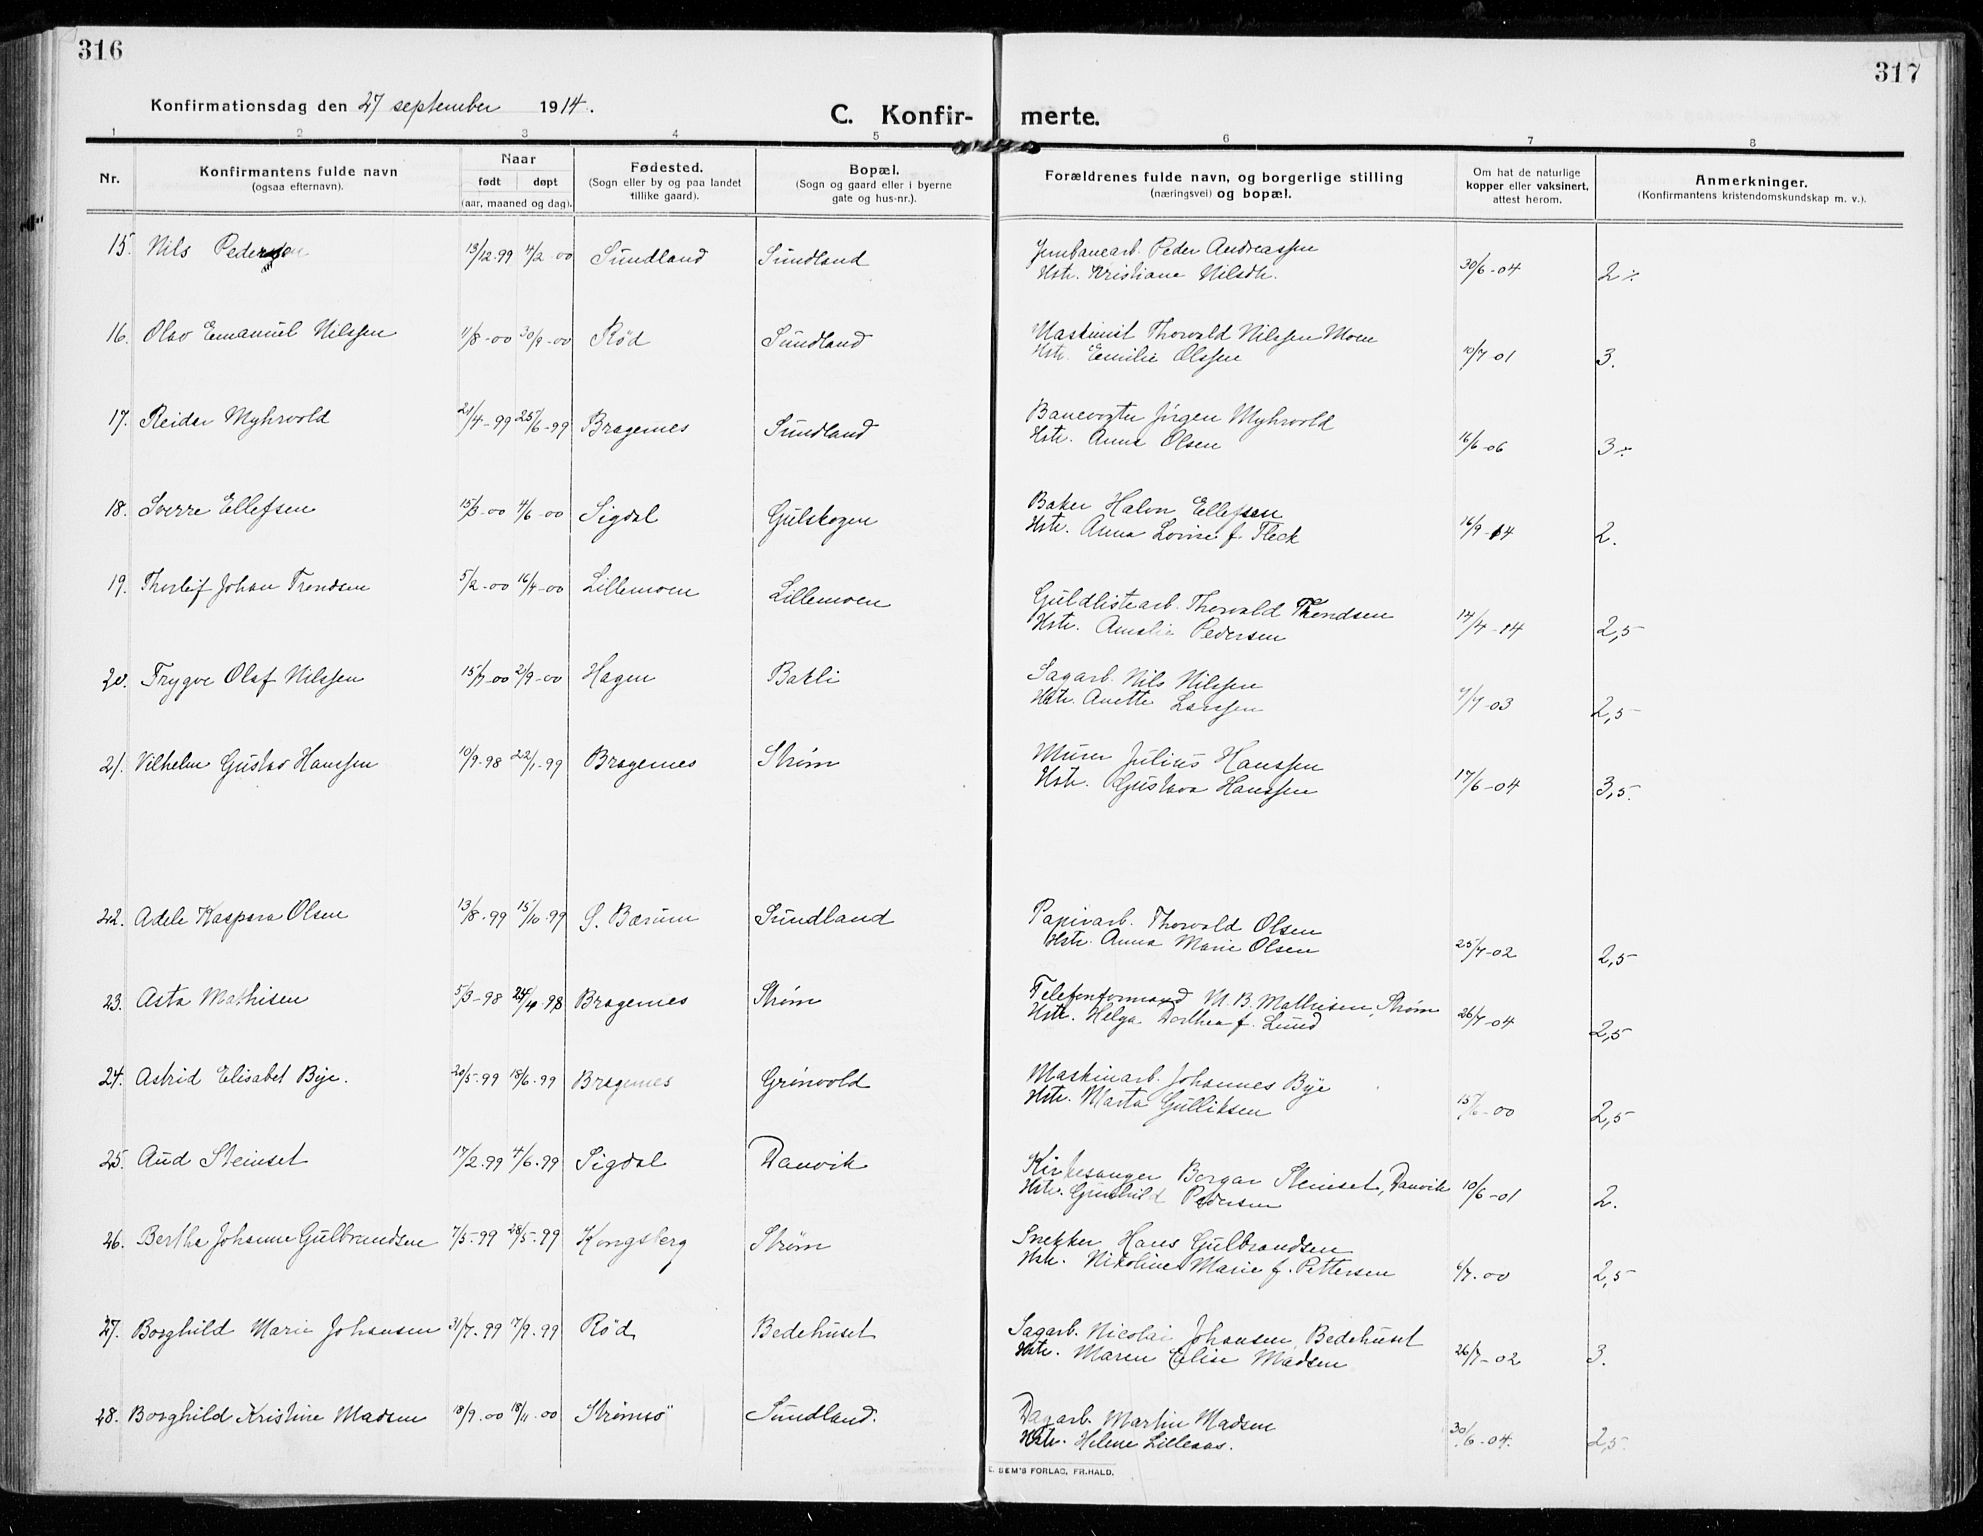 316
317
Konfirmationsdag den 27 september 1914.
C. Konfir- merte.
1 2 3 4 5 6 7 8
Nr.
Konfirmantens fulde navn
(ogsaa efternavn).
Naar
født døpt
(aar, maaned og dag).
Fødested.
(Sogn eller by og paa landet
tillike gaard).
Bopæl.
(Sogn og gaard eller i byerne
gate og hus-nr.).
Forældrenes fulde navn, og borgerlige stilling
(næringsvei) og bopæl.
Om hat de naturlige
kopper eller vaksinert,
attest herom.
Anmerkninger.
(Konfirmantens kristendomskundskap m. v.).
15. Nils Pedersen 13/12-99 4/2-00 Sundland Sundland Jernbanearb. Peder Andreassen
Hstr. Kristiane Nilsdtr. 30/6-04 2 ÷
16. Olav Emanuel Nilssen 11/8-00 30/9-00 Rød Sundland Maskinist Thorvald Nilssen Moen
Hstr. Emilie Olssen 10/7-01 3.
17. Reidar Myhrvold 21/4-99 25/6-99 Bragernes Sundland Banevogter Jörgen Myhrvold
Hstr. Anna Olsen 16/6-06 3 ÷
18. Sverre Ellefsen 15/3-00 4/6-00 Sigdal Gulskogen Baker Halvor Ellefsen
Hstr. Anna Lovise f. Fleck 16/9-14 2.
19. Thorleif Johan Trondsen 5/2-00 16/4-00 Lillemoen Lillemoen Guldlistearb. Thorvald Throndsen
Hstr. Amalie Pedersen 14/4-14 2,5
20. Trygve Olaf Nilssen 15/7-00 2/9-00 Hagen Bakli Sagarb. Nils Nilssen
Hstr. Anette Larssen 7/7-03 2,5
21. Vilhelm Gustav Hanssen 10/9-98 22/1-99 Bragernes Strøm Murer Julius Hanssen
Hstr. Gustava Hanssen 17/6-04 3,5.
22. Adele Kaspara Olsen 13/8-99 15/10-99 S. Bærum Sundland Papirarb. Thorvald Olsen
Hstr. Anna Marie Olsen 25/7-02 2,5
23. Asta Mathisen 5/3-98 24/4-98 Bragernes Strøm Telefonformand M. B. Mathisen, Strøm
Hstr. Helga Dorthea f. Lund 26/7-04 2,5
24. Astrid Elisabet Bye. 20/5-99 18/6-99 Bragernes Grönvold Maskinarb. Johannes Bye
Hstr. Marta Gulliksen 15/6-00 2,5
25. Aud Steinset 17/2-99 4/6-99 Sigdal Danvik Kirkesanger Borgar Steinset, Danvik
Hstr. Gunhild Pedersen 10/6-01 2.
26. Berthe Johanne Gulbrandsen 7/5-99 28/5-99 Kongsberg Strøm Snekker Hans Gulbrandsen
Hstr. Nikoline Marie f. Pettersen 6/7-00 2,5
27. Borghild Marie Johansen 31/7-99 17/9-99 Rød Bedehuset Sagarb. Nicolai Johansen, Bedehuset
Hstr. Maren Elise Madsen 26/7-02 3.
28. Borghild Kristine Madsen 18/9-00 18/11-00 Strömsö Sundland. Dagarb. Martin Madsen
Hstr. Helene Lilleaas. 30/6-04. 2,5.
E. SEM'S FORLAG, FR.HALD.